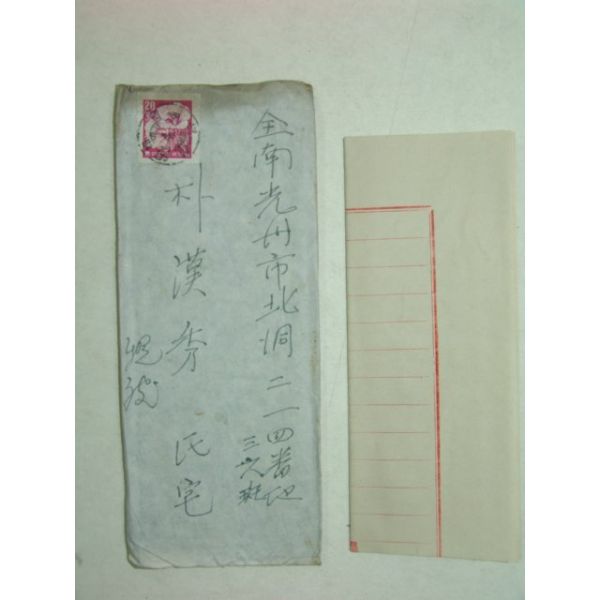 全南光州市北洞二一四番地
三六班
朴漢秀氏宅
20